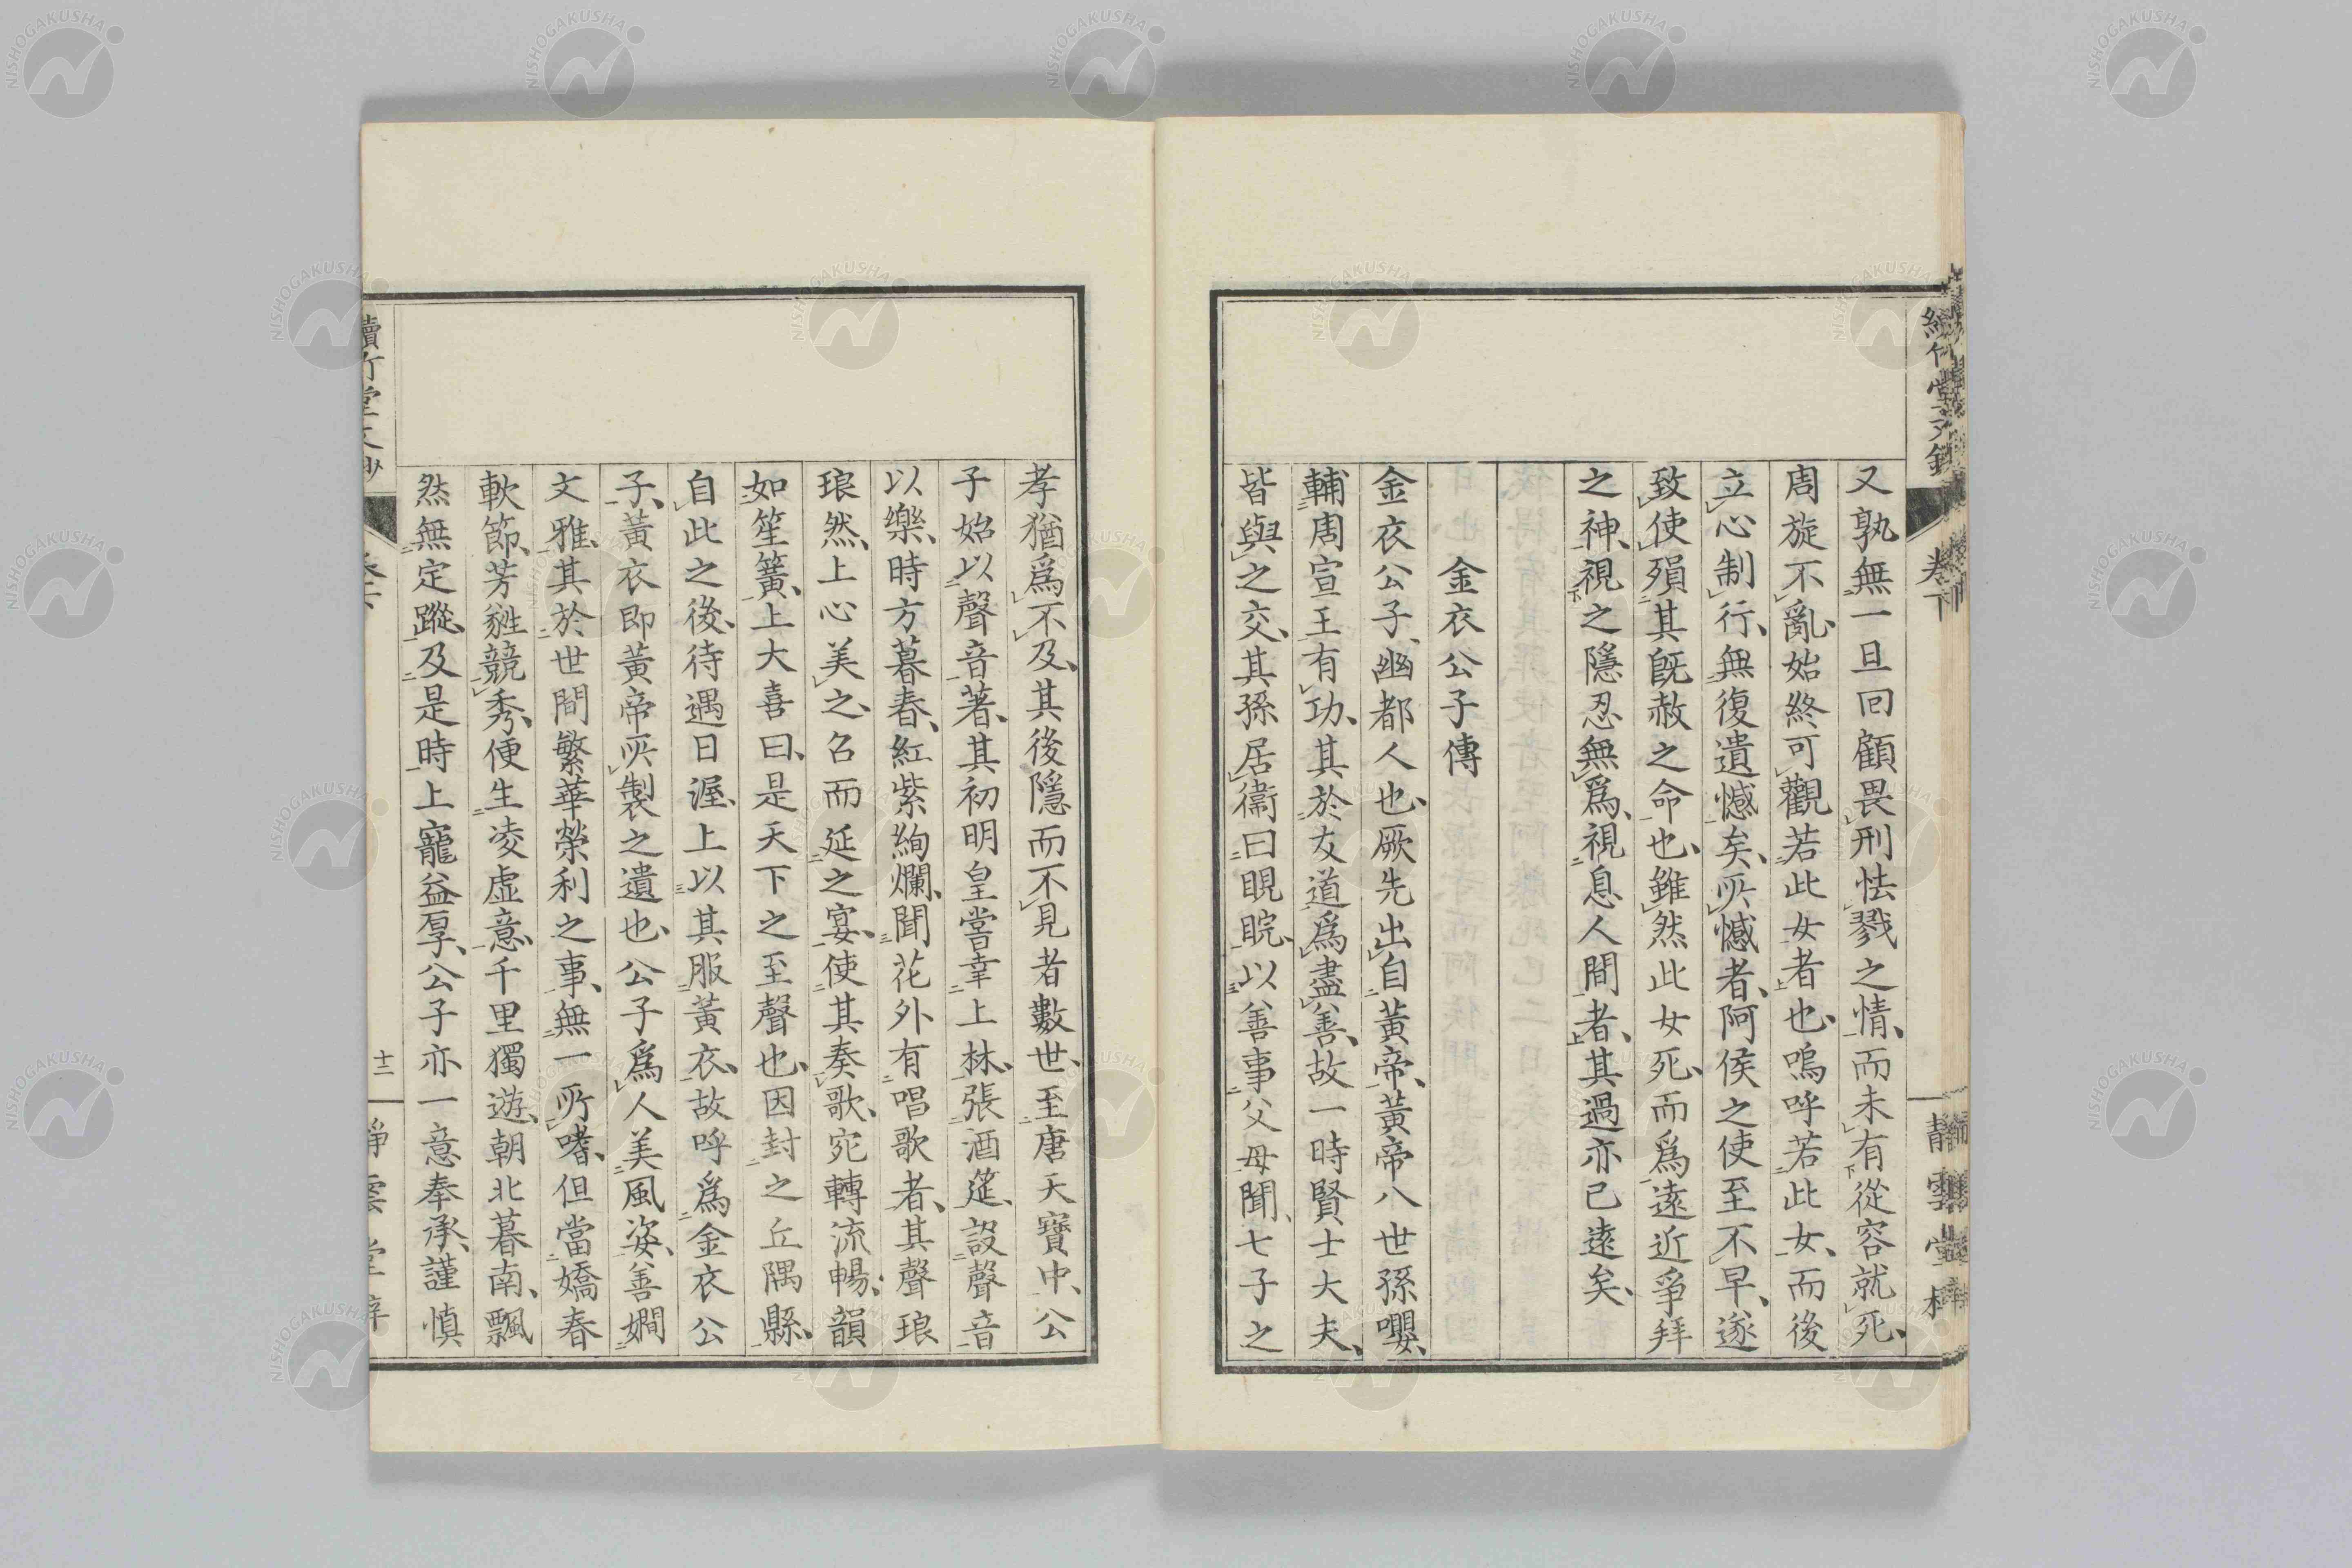 又孰無一旦回顧畏刑怯戮之情、而未有從容就死、
周旋不亂、始終可觀若此女者也、嗚呼若此女、而後
立心制行、無復遺憾矣、所憾者、阿侯之使至不早、遂
致使殞其既赦之命也、雖然此女死、而爲遠近爭拜
之神、視之隱忍無爲、視息人間者、其過亦已遠矣、
金衣公子傳
金衣公子、幽都人也、厥先出自黃帝、黃帝八世孫嚶、
輔周宣王有功、其於友道爲盡善、故一時賢士大夫、
皆與之交、其孫居衞曰睍睆、以善事父母聞、七子之
孝猶爲不及、其後隱而不見者數世、至唐天寶中、公
子始以聲音著、其初明皇嘗幸上林、張酒筵、設聲音
以樂、時方暮春、紅紫絢爛、聞花外有唱歌者、其聲琅
琅然、上心美之、召而延之宴、使其奏歌、宛轉流暢、韻
如笙簧、上大喜曰、是天下之至聲也、因封之丘隅縣、
自此之後、待遇日渥、上以其服黃衣、故呼爲金衣公
子、黃衣即黃帝所製之遺也、公子爲人美風姿、善嫺
文雅、其於世間繁華榮利之事、無一所嗜、但當嬌春
軟節、芳甤競秀、便生凌虛意、千里獨遊、朝北暮南、飄
然無定蹤、及是時上寵益厚、公子亦一意奉承、謹愼
續竹堂文鈔
卷下
十二
靜雲堂梓